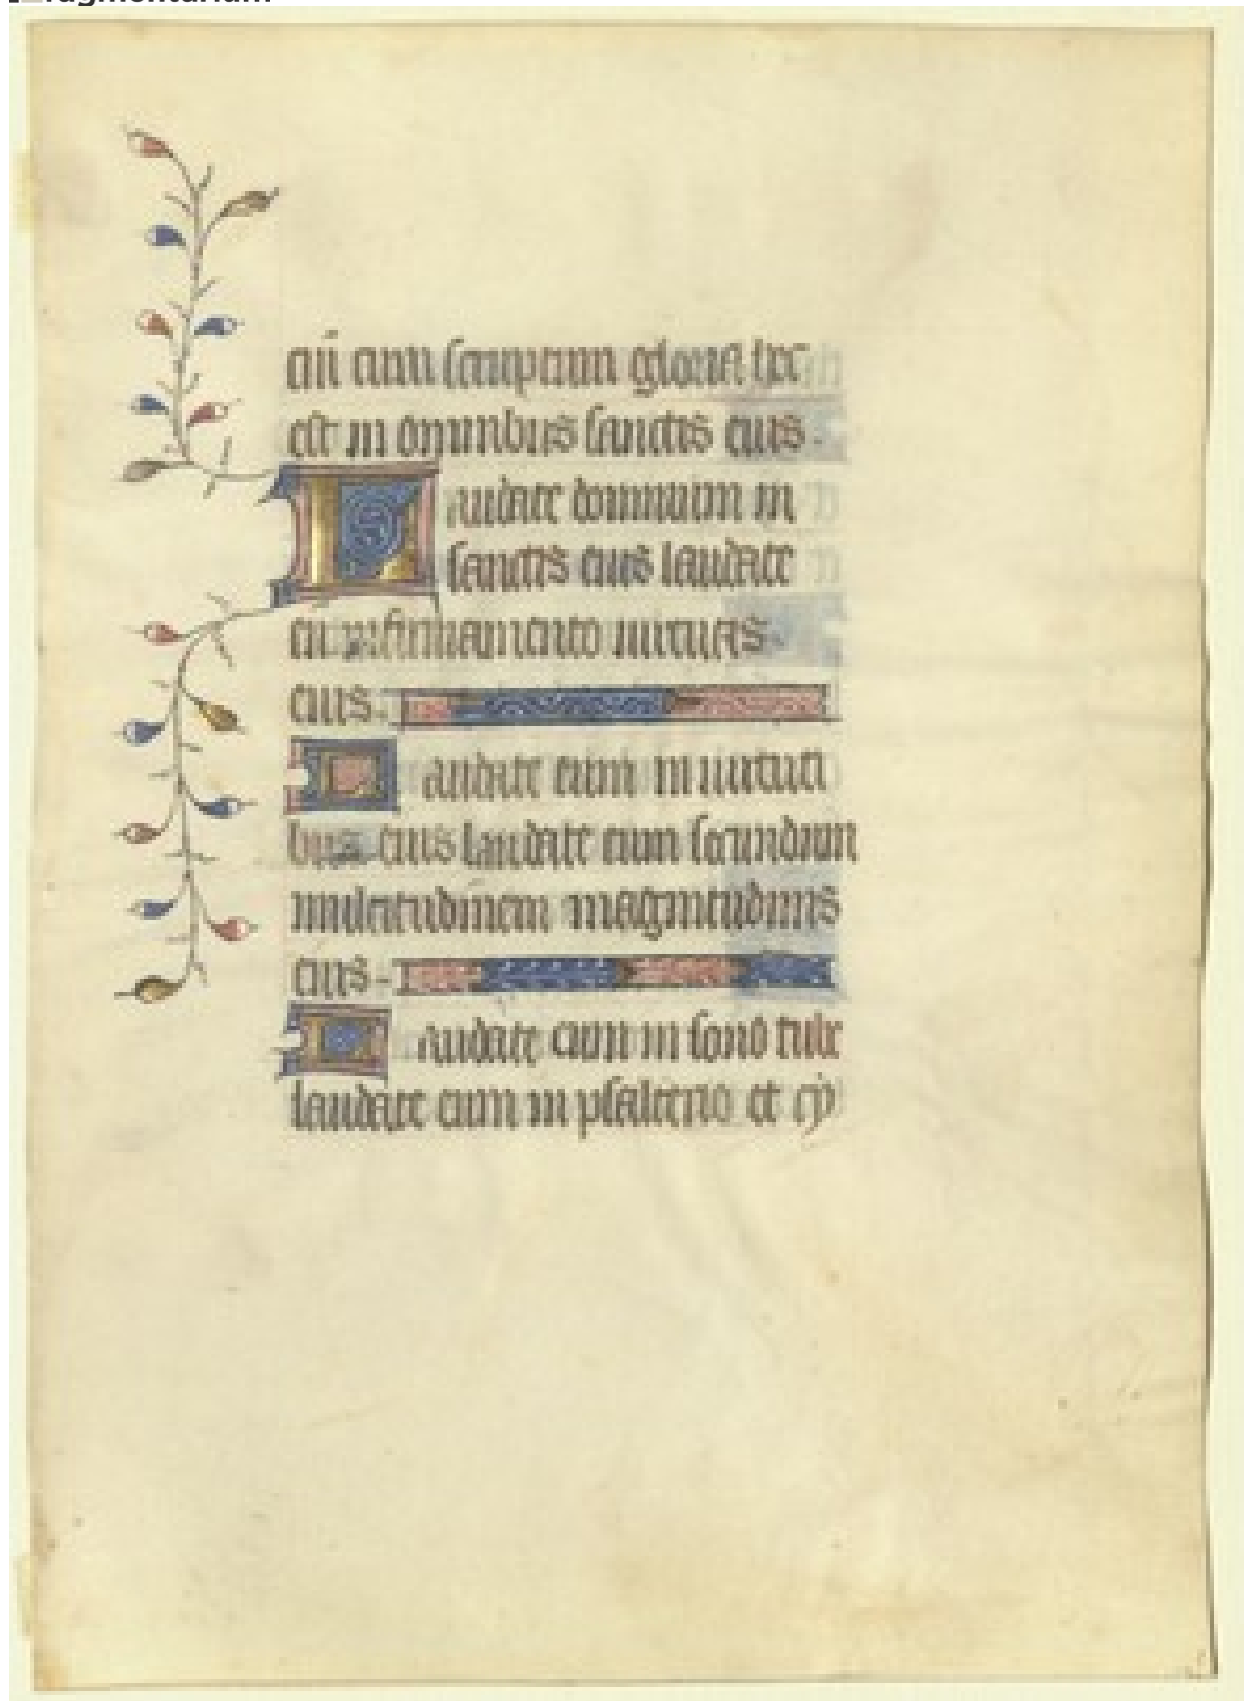 ciū cum scriptum gloria hec
est in omnibus sanctis eius.
Laudate dominum in
sanctis eius laudate
eum in firmamento uirtutis
eius.
Laudate eum in uirtuti
bus eius laudate eum secundum
multitudinem magnitudinis
eius.
Laudate eum in sono tube
laudate eum in psalterio et cy